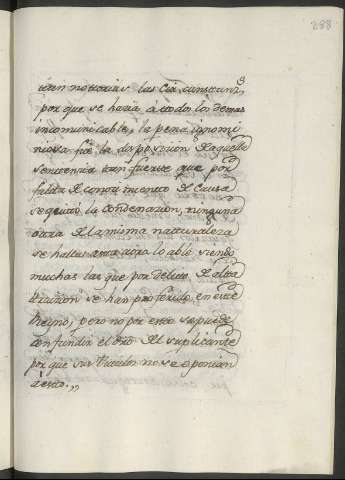 288
por que se haria á todos los demas
incomunicable, la pena ignomi
niosa fue la disposicion de aquella
sentencia tan fuerte que por
falta de conocimiento de Causa
se quitó la Condenacion, ninguna
otra de la misma naturaleza
se halla siendo
muchas las que por delito de alta
traicion se han proferido en este
Reyno, pero no por esto se puede
confundir el del suplicante
por que sus titulos no se oponian
á esto.,,